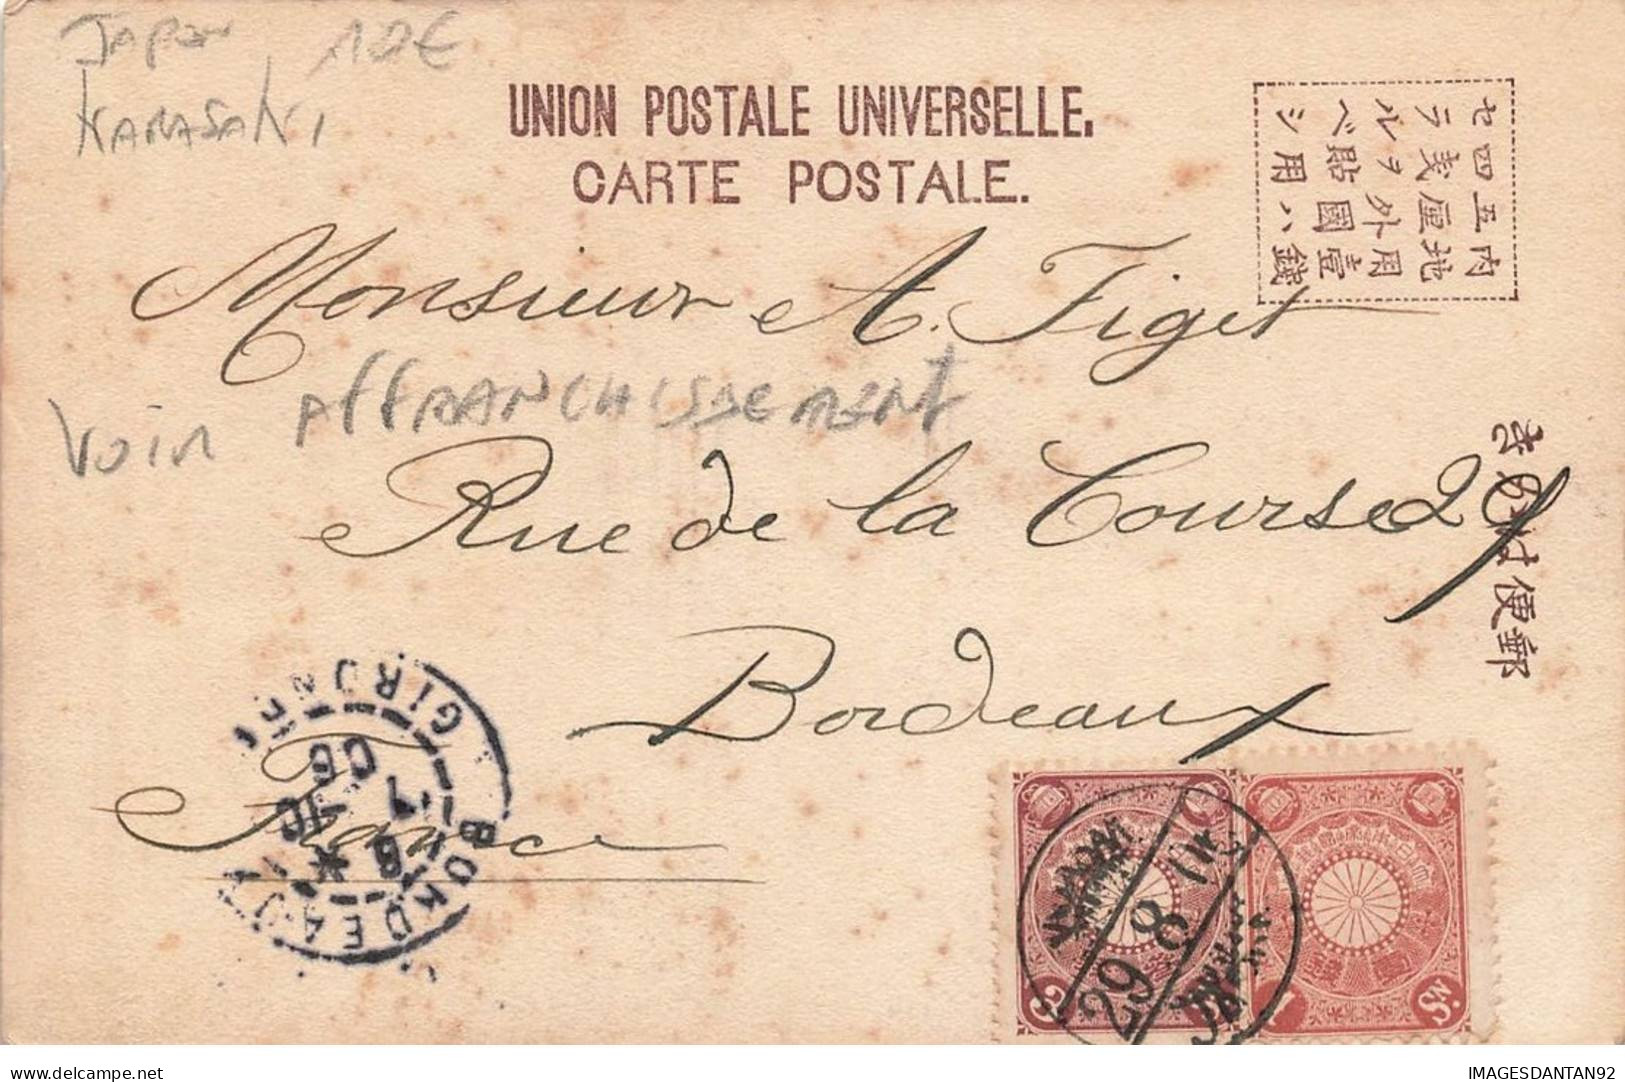 Japon 10€
Nagasaki
UNION POSTALE UNIVERSELLE.
CARTE POSTALE.
内地用壹錢
五厘外國ハ
四錢ヲ貼用
セラルベシ
Monsieur A. Figet
Voir AFFRANCHISSEMENT
Rue de la Course 29
郵便はかき
Bordeaux
France
BORDEAUX
GIRONDE
8
29 8
Sn.
1
IMAGESDANTAN92